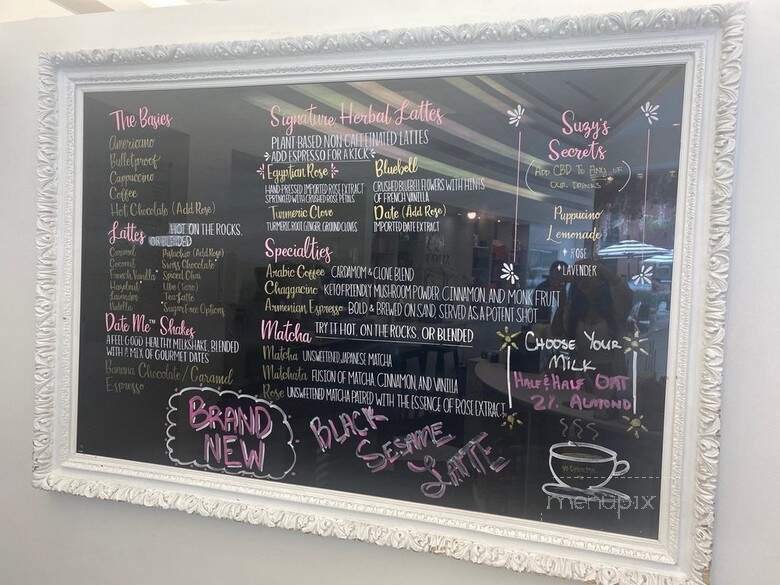 The Basics
Americano
Bulletproof
Cappuccino
Coffee
Hot Chocolate (Add Rose)
Lattes HOT ON THE ROCKS,
OR BLENDED
Caramel
Coconut
French Vanilla
Hazelnut
Lavender
Vanilla
Pistachio (Add Rose)
Swiss Chocolate
Spiced Chai
Ube (Taro)
Tea Latte
Sugar Free Options
Date Me™ Shakes
A FEEL GOOD HEALTHY MILKSHAKE, BLENDED
WITH A MIX OF GOURMET DATES
Banana Chocolate / Caramel
Espresso
BRAND
NEW
Signature Herbal Lattes
PLANT BASED NON CAFFEINATED LATTES
ADD ESPRESSO FOR A KICK
Egyptian Rose
HAND PRESSED IMPORTED ROSE EXTRACT
SPRINKLED WITH CRUSHED ROSE PETALS
Bluebell
CRUSHED BLUEBELL FLOWERS WITH HINTS
OF FRENCH VANILLA
Turmeric Clove
TURMERIC ROOT, GINGER, GROUND CLOVES
Date (Add Rose)
IMPORTED DATE EXTRACT
Specialties
Arabic Coffee CARDAMOM & CLOVE BLEND
Chaggacino KETO FRIENDLY MUSHROOM POWDER, CINNAMON, AND MONK FRUIT
Armenian Espresso BOLD & BREWED ON SAND, SERVED AS A POTENT SHOT
Matcha TRY IT HOT, ON THE ROCKS, OR BLENDED
Matcha UNSWEETENED JAPANESE MATCHA
Matchata FUSION OF MATCHA, CINNAMON, AND VANILLA
Rose UNSWEETENED MATCHA PAIRED WITH THE ESSENCE OF ROSE EXTRACT
BLACK
SESAME
LATTE
Suzy's
Secrets
(ADD CBD TO ANY OF
OUR DRINKS)
Puppucino
Lemonade
ROSE
LAVENDER
CHOOSE YOUR
MILK
HALF & HALF OAT
2% ALMOND
menupix